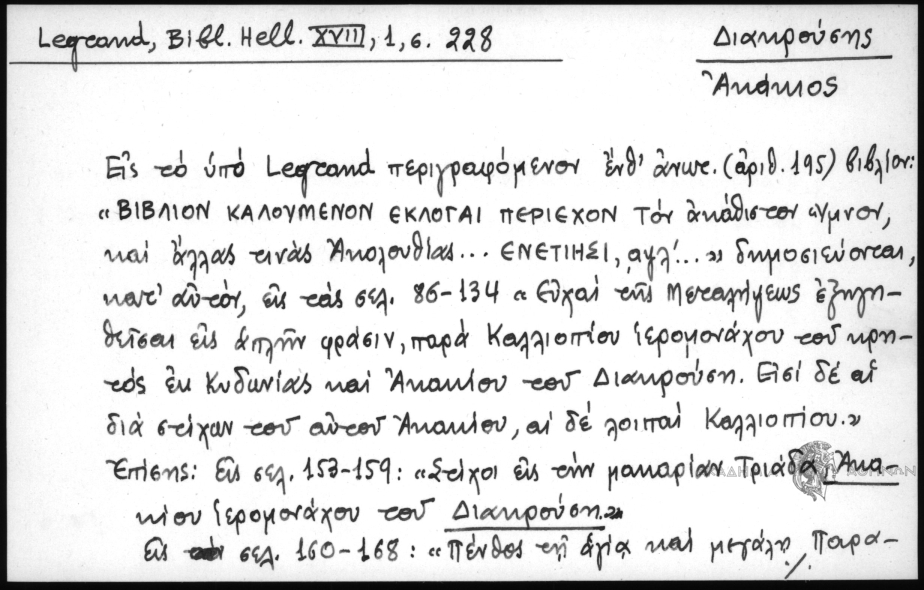 Legrand, Bibl. Hell. XVIII, 1, σ. 228
Διακρούσης
Ἀκάκιος
Εἰς τό ὑπό Legrand περιγραφόμενον ἔνθ' ἀνωτ. (ἀριθ. 195) βιβλίον:
«ΒΙΒΛΙΟΝ ΚΑΛΟΥΜΕΝΟΝ ΕΚΛΟΓΑΙ ΠΕΡΙΕΧΟΝ τόν ἀκάθιστον ὕμνον,
καί ἄλλας τινάς Ἀκολουθίας... ΕΝΕΤΙΗΣΙ, ͵αχλ΄...» δημοσιεύονται,
κατ' αὐτόν, εἰς τάς σελ. 86-134 «Εὐχαί τῆς Μεταλήψεως ἐξηγη-
θεῖσαι εἰς ἁπλῆν φράσιν, παρά Καλλιοπίου ἱερομονάχου τοῦ κρη-
τός ἐκ Κυδωνίας καί Ἀκακίου τοῦ Διακρούση. Εἰσί δέ αἱ
διά στίχων τοῦ αὐτοῦ Ἀκακίου, αἱ δέ λοιπαί Καλλιοπίου.»
Ἐπίσης: Εἰς σελ. 153-159: «Στίχοι εἰς τήν μακαρίαν Τριάδα Ἀκα-
κίου ἱερομονάχου τοῦ Διακρούση.»
Εἰς σελ. 160-168: «Πένθος τῇ ἁγίᾳ καί μεγάλῃ Παρα-